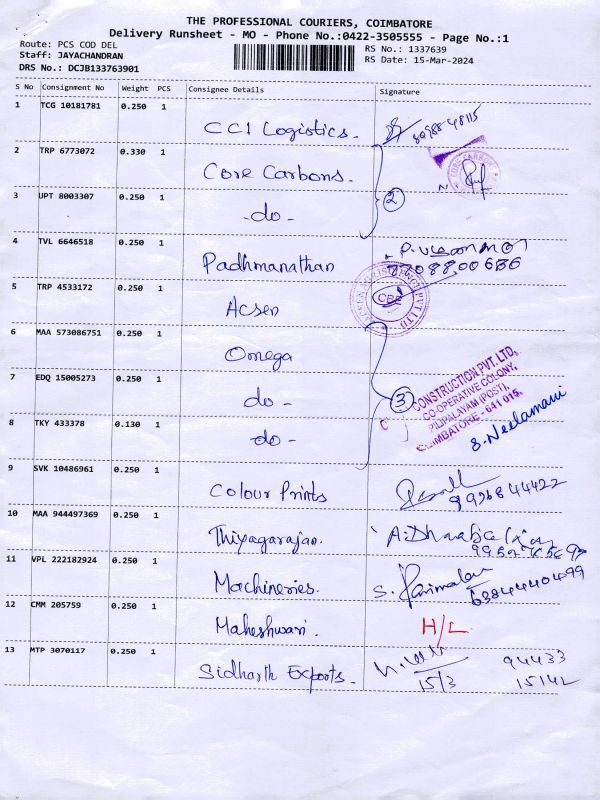 THE PROFESSIONAL COURIERS, COIMBATORE
Delivery Runsheet - MO - Phone No.:0422-3505555 - Page No.:1
Route: PCS COD DEL
RS No.: 1337639
Staff: JAYACHANDRAN
RS Date: 15-Mar-2024
DRS No.: DCJB133763901
S No Consignment No Weight PCS Consignee Details Signature
1 TCG 10181781 0.250 1 CCI Logistics.
2 TRP 6773072 0.330 1 Core Carbons.
3 UPT 8003307 0.250 1 -do-
②
4 TVL 6646518 0.250 1 Padhmanathan
7708800686
5 TRP 4533172 0.250 1 Acsen
CBE
6 MAA 573086751 0.250 1 Omega
CONSTRUCTION PVT. LTD,
CO-OPERATIVE COLONY,
PILIPALAYAM (POST),
COIMBATORE - 641 015,
7 EDQ 15005273 0.250 1 -do-
③
8 TKY 433378 0.130 1 -do-
S. Neelamani
9 SVK 10486961 0.250 1 Colour Prints
10 MAA 944497369 0.250 1 Thiyagarajan.
11 VPL 222182924 0.250 1 Machineries.
12 CMM 205759 0.250 1 Maheshwari. H/L
13 MTP 3070117 0.250 1 Sidharth Exports. 94433
15/3 15142